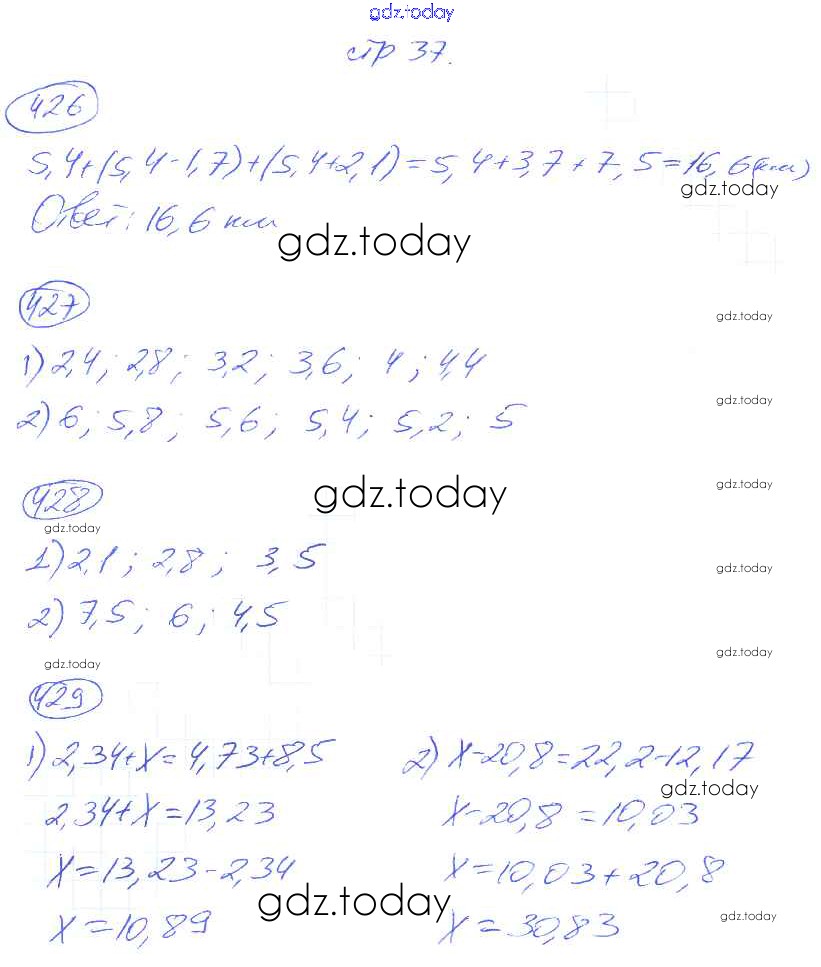 gdz.today
стр 37.
426
5,4+(5,4-1,7)+(5,4+2,1)=5,4+3,7+7,5=16,6(км)
gdz.today
Ответ: 16,6 км
gdz.today
427
gdz.today
1) 2,4; 2,8; 3,2; 3,6; 4; 4,4
gdz.today
2) 6; 5,8; 5,6; 5,4; 5,2; 5
428
gdz.today
gdz.today
gdz.today
1) 2,1; 2,8; 3,5
gdz.today
2) 7,5; 6; 4,5
gdz.today
gdz.today
429
1) 2,34+x=4,73+8,5
2,34+x=13,23
x=13,23-2,34
x=10,89
2) x-20,8=22,2-12,17
gdz.today
x-20,8=10,03
x=10,03+20,8
x=30,83
gdz.today
gdz.today